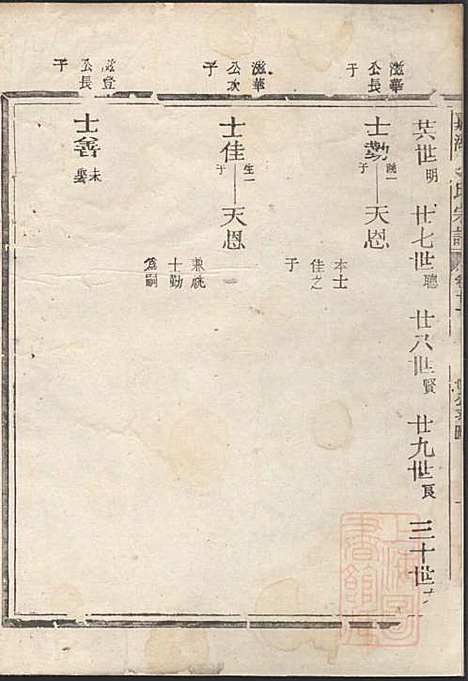 氏宗譜
廿六世明 廿七世聰 廿八世賢 廿九世良 三十世
滋華公長子
士勤
繼一子
天恩
本士佳之子
滋華公次子
士佳
生一子
天恩
兼祧士勤為嗣
滋登公長子
士善
未娶
上海圖書館藏